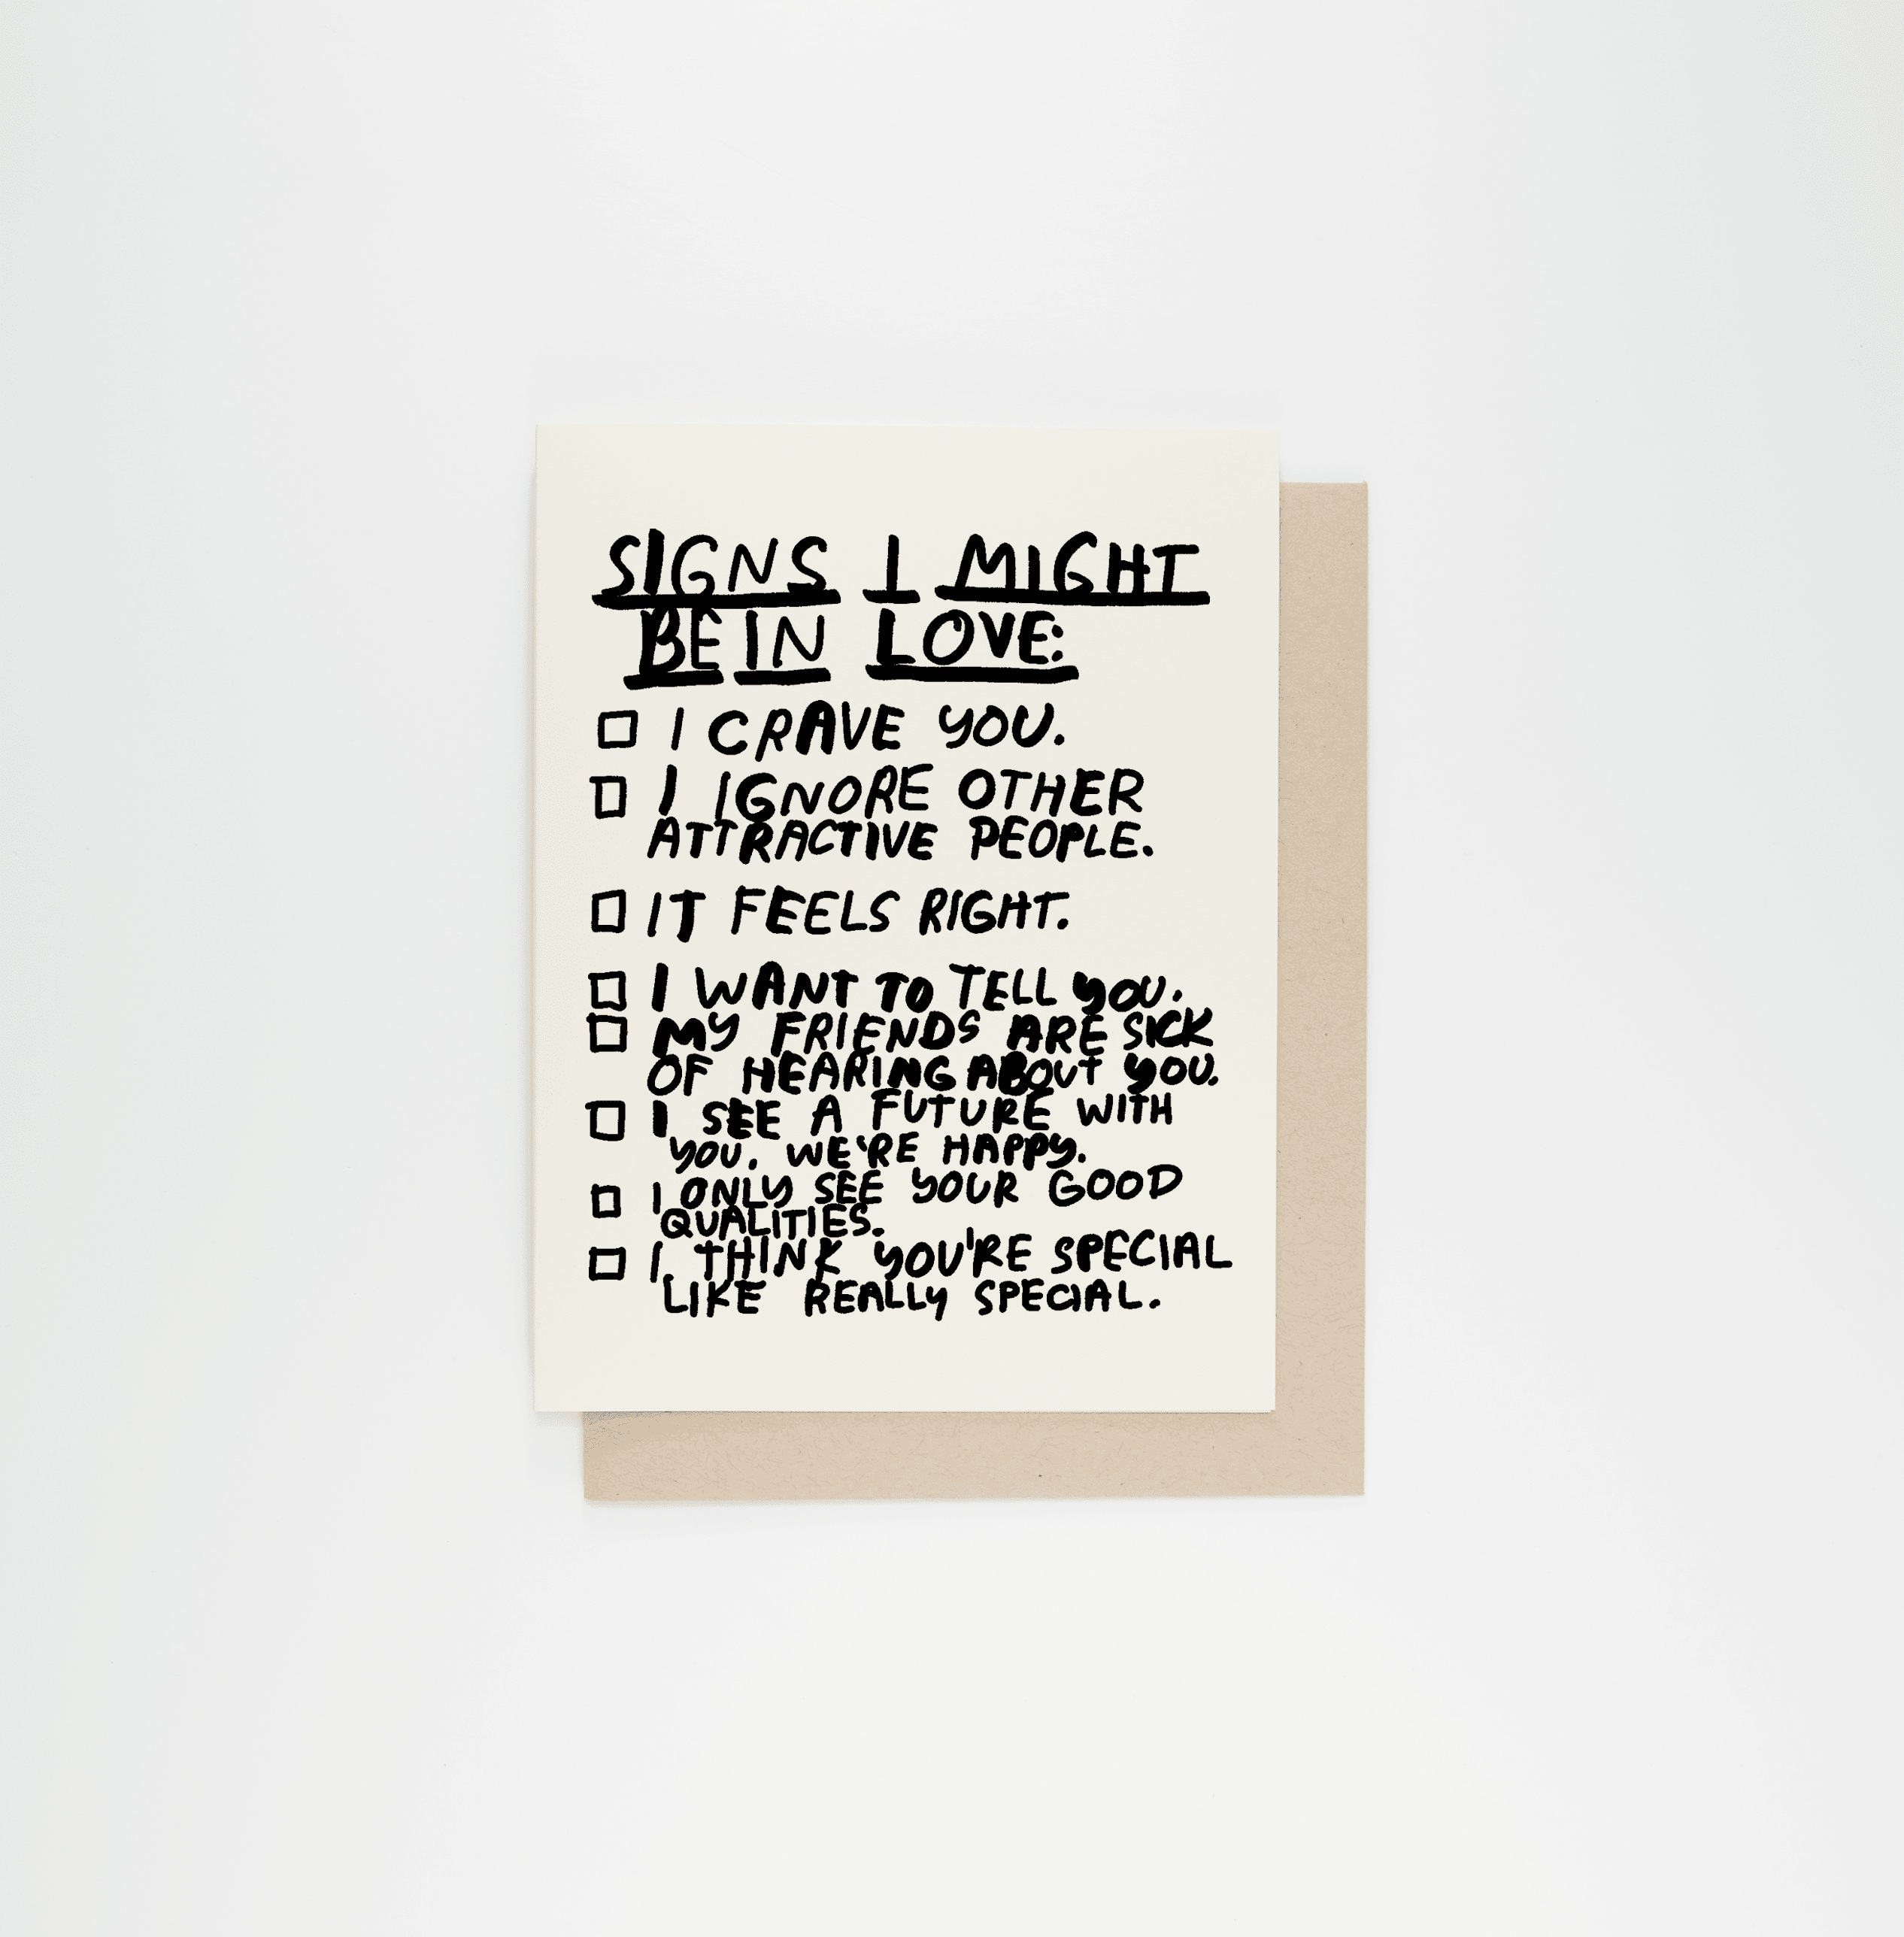 SIGNS I MIGHT
BE IN LOVE:
I CRAVE YOU.
I IGNORE OTHER
ATTRACTIVE PEOPLE.
IT FEELS RIGHT.
I WANT TO TELL YOU.
MY FRIENDS ARE SICK
OF HEARING ABOUT YOU.
I SEE A FUTURE WITH
YOU. WE'RE HAPPY.
I ONLY SEE YOUR GOOD
QUALITIES.
I THINK YOU'RE SPECIAL
LIKE REALLY SPECIAL.